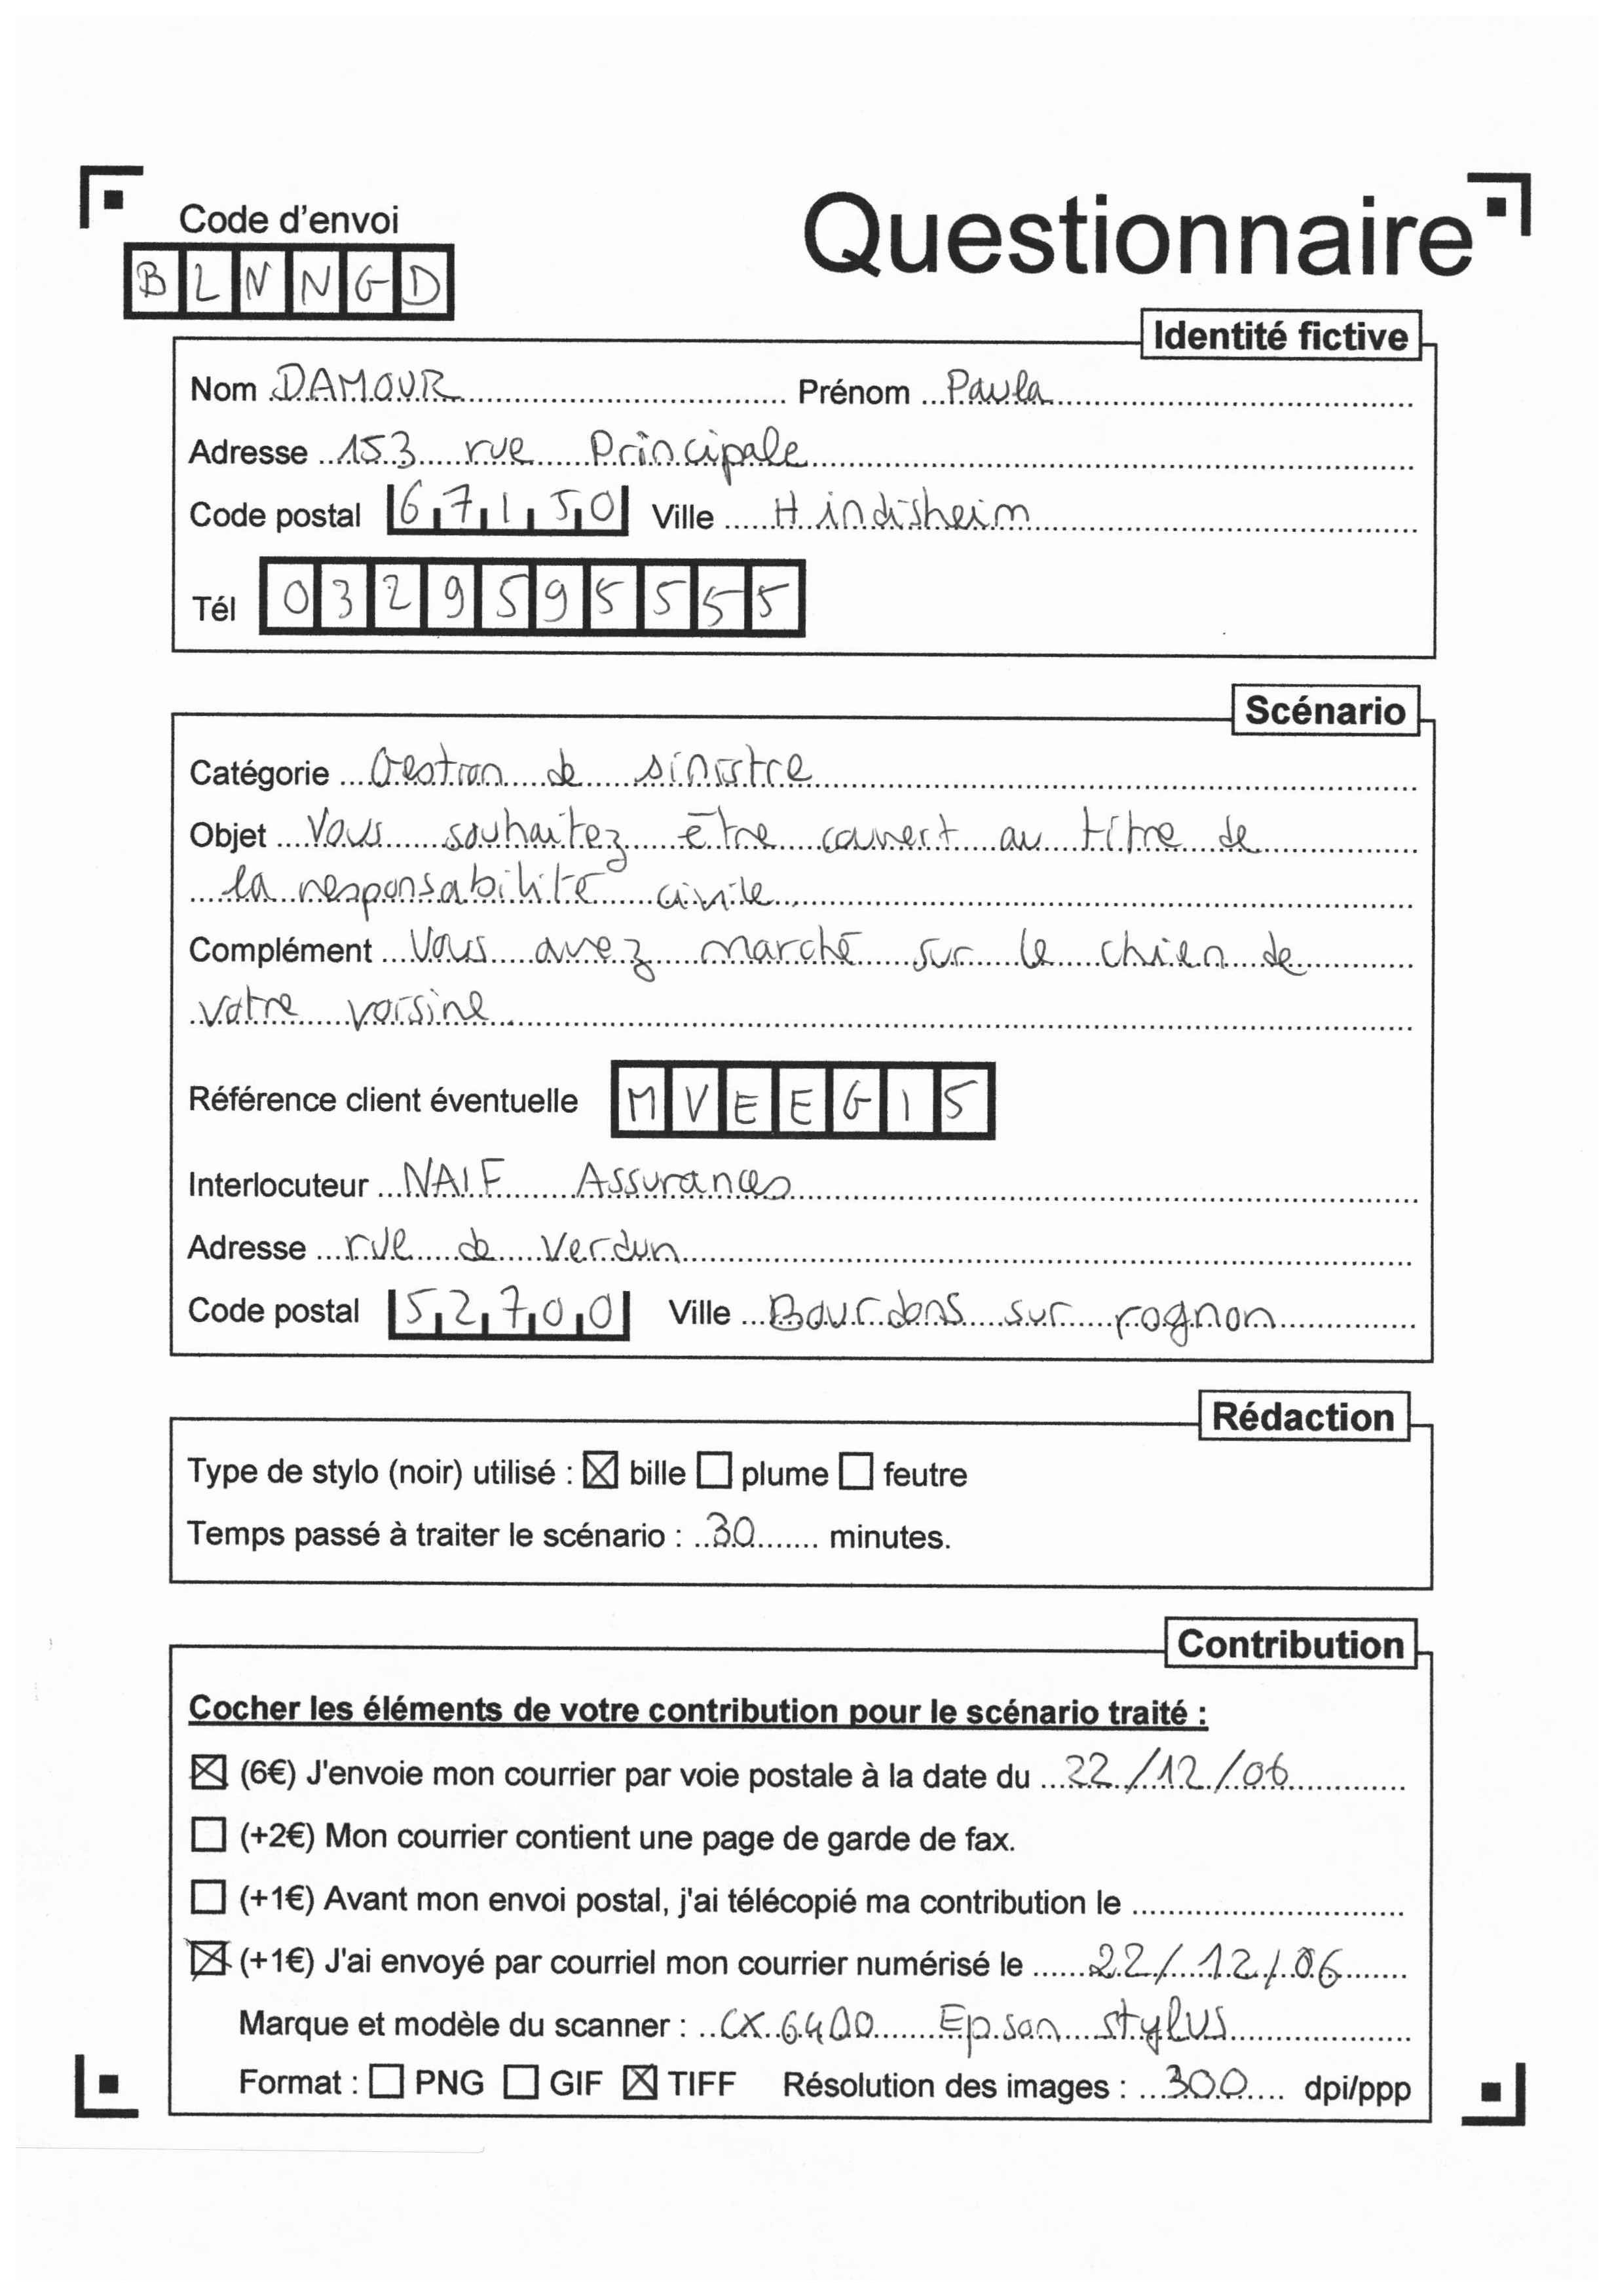 Code d'envoi
Questionnaire
BLNNGD
Identité fictive
Nom DAMOUR Prénom Paula
Adresse 153 rue Principale
Code postal 67150 Ville Hindisheim
Tél 0329595555
Scénario
Catégorie Gestion de sinistre
Objet Vous souhaitez être couvert au titre de
la responsabilité civile
Complément Vous avez marché sur le chien de
votre voisine
Référence client éventuelle MVEEG15
Interlocuteur NAIF Assurances
Adresse rue de Verdun
Code postal 52700 Ville Bourdons sur rognon
Rédaction
Type de stylo (noir) utilisé : ☒ bille ☐ plume ☐ feutre
Temps passé à traiter le scénario : 30 minutes.
Contribution
Cocher les éléments de votre contribution pour le scénario traité :
☒ (6€) J'envoie mon courrier par voie postale à la date du 22/12/06
☐ (+2€) Mon courrier contient une page de garde de fax.
☐ (+1€) Avant mon envoi postal, j'ai télécopié ma contribution le
☒ (+1€) J'ai envoyé par courriel mon courrier numérisé le 22/12/06
Marque et modèle du scanner : CX 6400 Epson stylus
Format : ☐ PNG ☐ GIF ☒ TIFF Résolution des images : 300 dpi/ppp